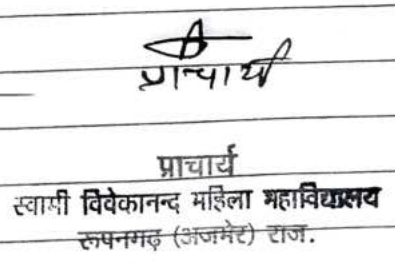 प्राचार्य
प्राचार्य
स्वामी विवेकानन्द महिला महाविद्यालय
रूपनगढ़ (अजमेर) राज.